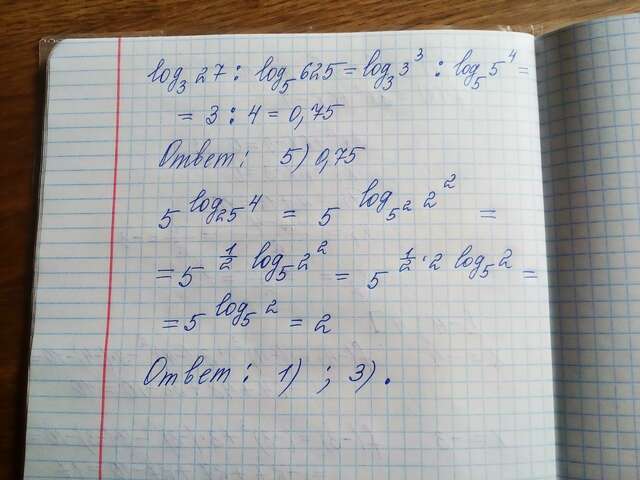 log₃ 27 : log₅ 625 = log₃ 3³ : log₅ 5⁴ =
= 3 : 4 = 0,75
Ответ: 5) 0,75
5^(log₂₅ 4) = 5^(log_(5²) 2²) =
= 5^(½ log₅ 2²) = 5^(½·2 log₅ 2) =
= 5^(log₅ 2) = 2
Ответ: 1) ; 3).